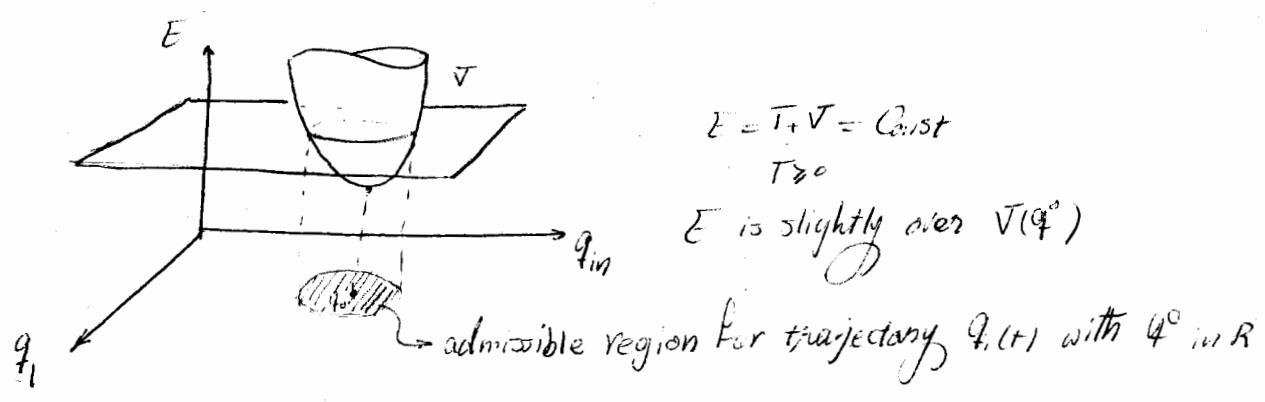 E
V
E = T + V = Const
T ≥ 0
E is slightly over V(q°)
q_in
q_0
admissible region for trajectory q_i(t) with q° in R
q_1